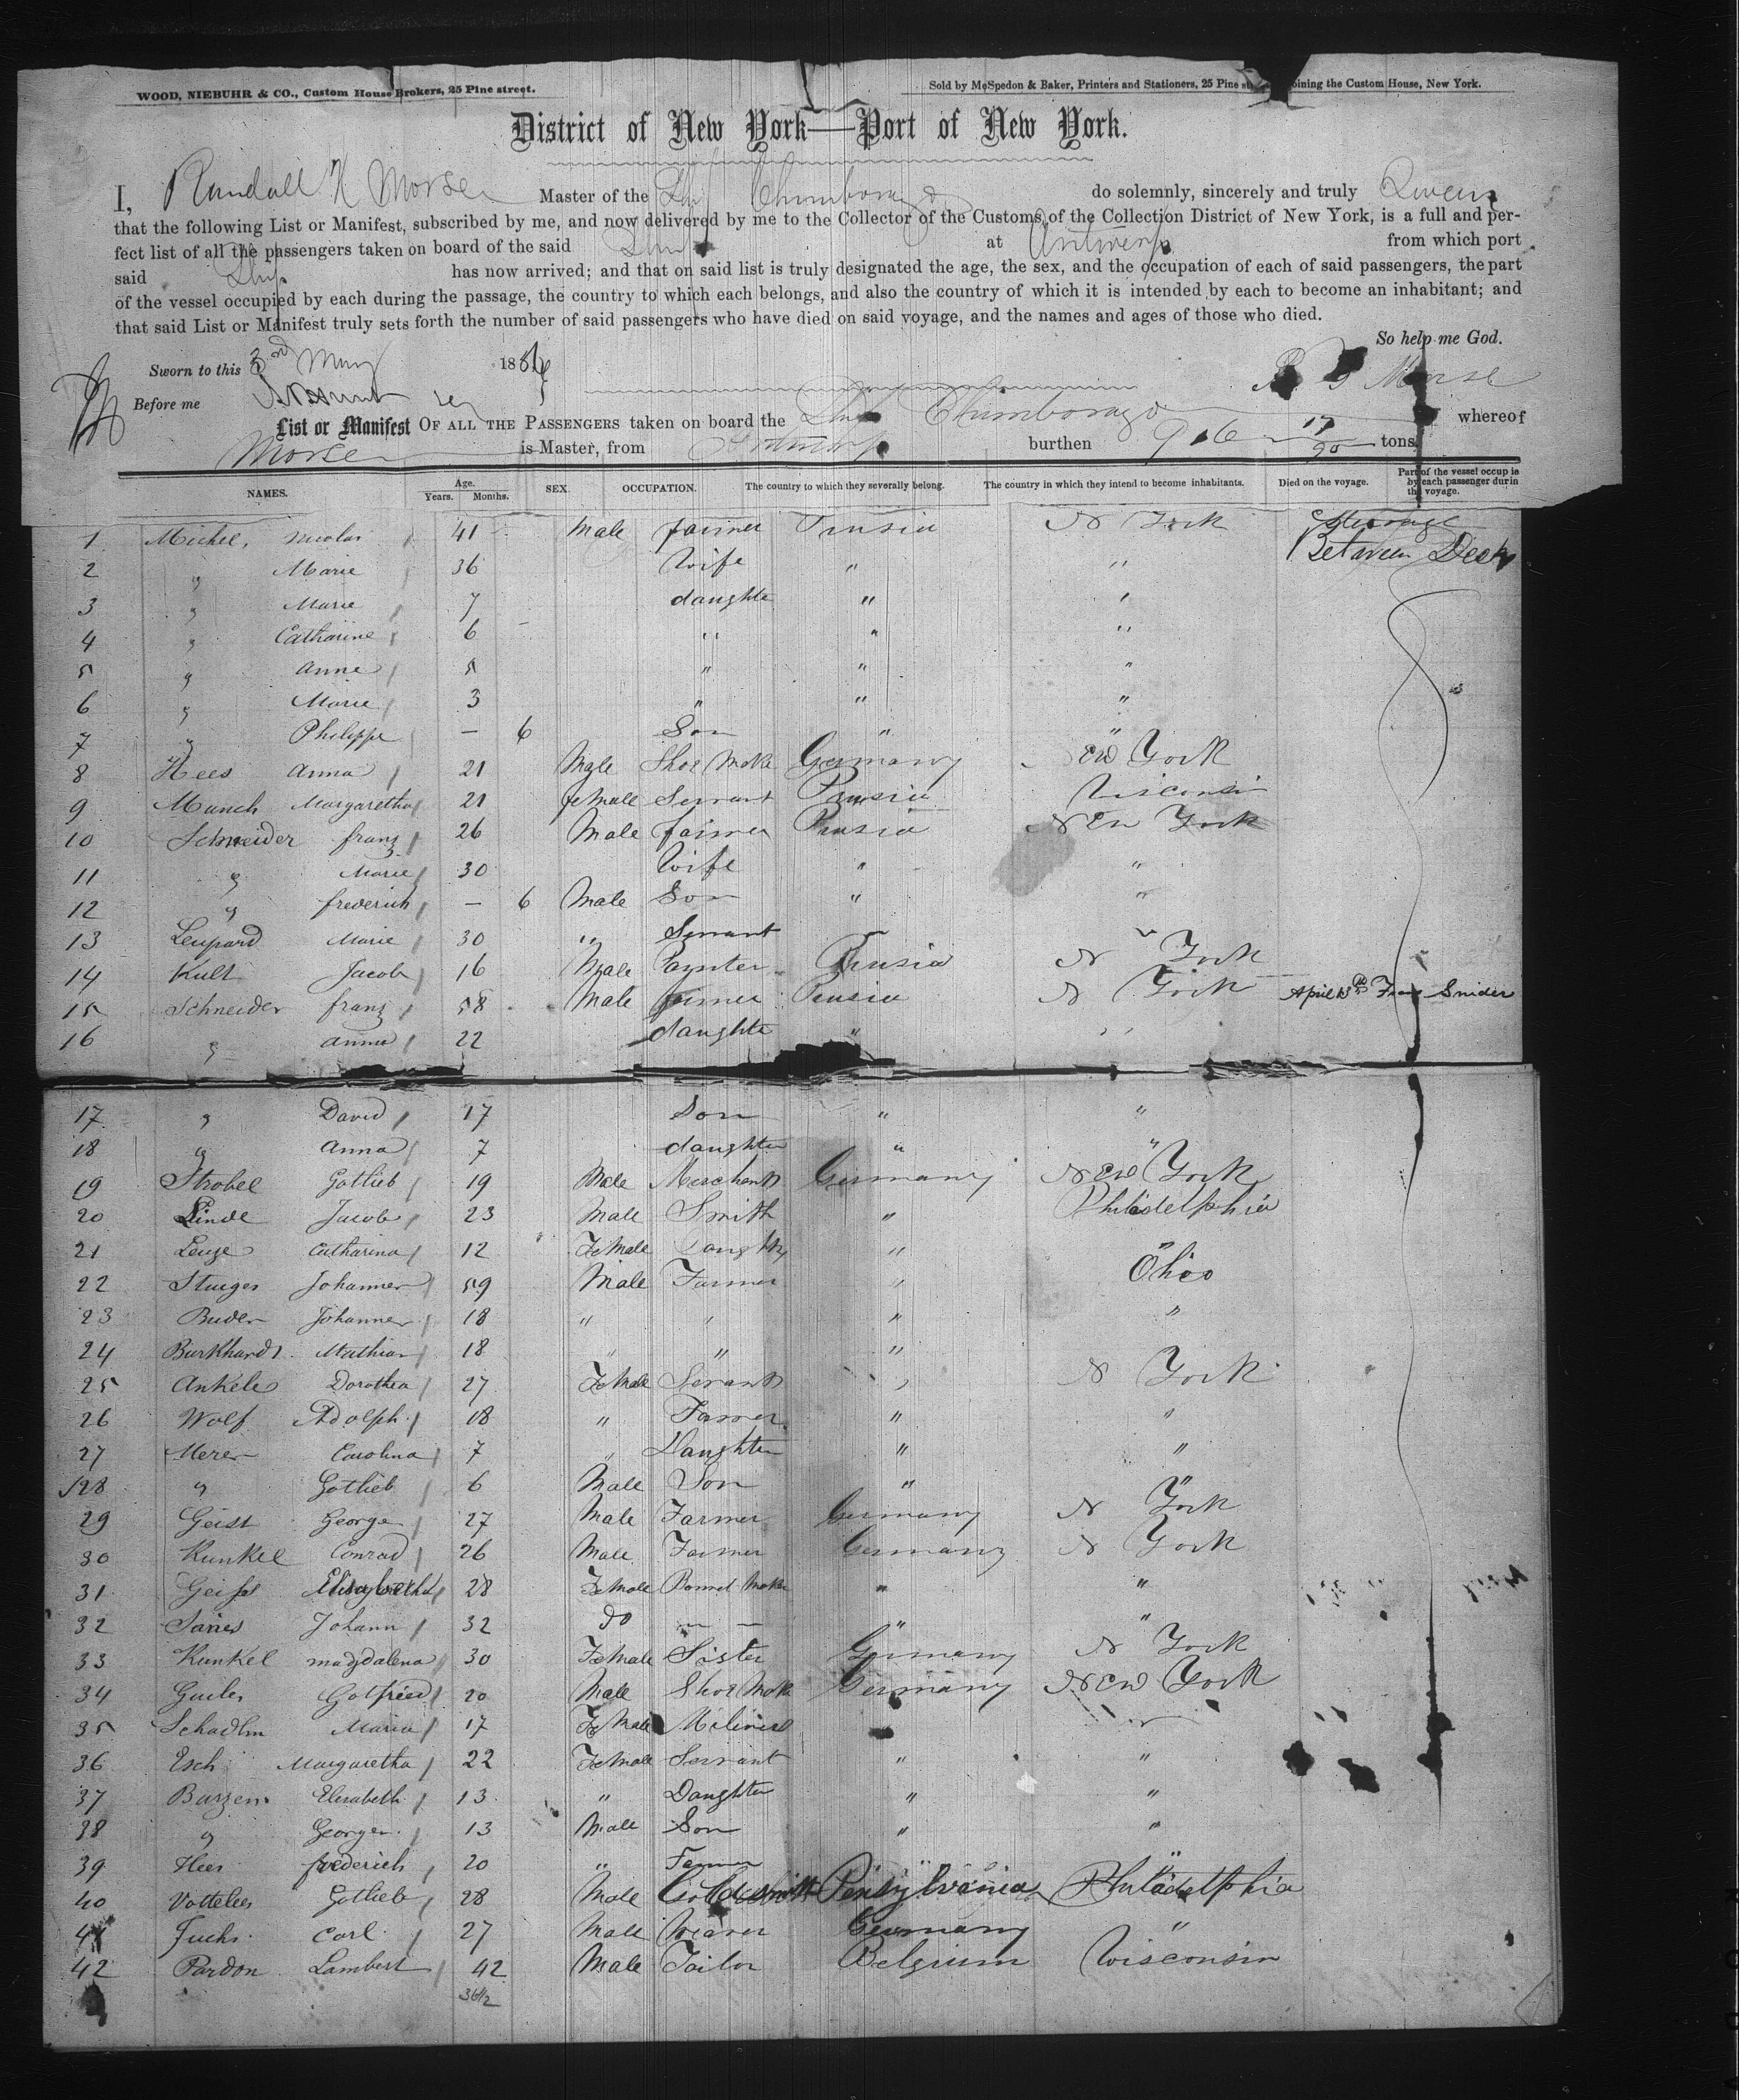 WOOD, NIEBUHR & CO., Custom House Brokers, 25 Pine street.
Sold by McSpedon & Baker, Printers and Stationers, 25 Pine joining the Custom House, New York.
District of New York—Port of New York.
I, Randall H Morse Master of the Ship Chimborazo do solemnly, sincerely and truly Swear
that the following List or Manifest, subscribed by me, and now delivered by me to the Collector of the Customs of the Collection District of New York, is a full and per-
fect list of all the passengers taken on board of the said Ship at Antwerp from which port
said Ship has now arrived; and that on said list is truly designated the age, the sex, and the occupation of each of said passengers, the part
of the vessel occupied by each during the passage, the country to which each belongs, and also the country of which it is intended by each to become an inhabitant; and
that said List or Manifest truly sets forth the number of said passengers who have died on said voyage, and the names and ages of those who died.
So help me God.
Sworn to this 3rd May 1854
Before me
Morse
List or Manifest OF ALL THE PASSENGERS taken on board the Ship Chimborazo whereof
Morse is Master, from Antwerp burthen 916 17/90 tons.
NAMES. Age. Years. Months. SEX. OCCUPATION. The country to which they severally belong. The country in which they intend to become inhabitants. Died on the voyage. Part of the vessel occup ie by each passenger durin the voyage.
1 Michel, Nicolas 41 Male farmer Prusia N York Steerage
2 " Marie 36 Wife " " Between Decks
3 " Marie 7 daughte " "
4 " Catharine 6 " " "
5 " Anne 5 " " "
6 " Marie 3 " " "
7 " Philippe — 6 Son " "
8 Hees Anna 21 Male Shoe Make Germany New York
9 Munch Margaretha 21 female Servant Prussia Wisconsin
10 Schneider franz 26 Male farmer Prusia New York
11 " Marie 30 Wife " "
12 " frederich — 6 Male Son " "
13 Leupard Marie 30 " Servant "
14 Kult Jacob 16 Male Paynter Prusia N York
15 Schneider franz 58 Male farmer Prusia N York April 13th Franz Snider
16 " anna 22 daughte " "
17 " David 17 Son " "
18 " Anna 7 daughter " "
19 Strobel Gotlieb 19 Male Merchant Germany New York
20 Linde Jacob 23 Male Smith " Philadelphia
21 Leuze Catharina 12 Female Daughter " "
22 Stuges Johannes 59 Male Farmer " Ohio
23 Buder Johannes 18 " " " "
24 Burkhardt Mathias 18 " " "
25 Ankele Dorothea 27 Female Servant " N York
26 Wolf Adolph 18 " Farmer " "
27 Merer Carolina 7 " Daughter " "
28 " Gotlieb 6 Male Son " "
29 Geist George 27 Male Farmer Germany N York
30 Kunkel Conrad 26 Male Farmer Germany N York
31 Geist Elisabetha 28 Female Bonnet Make " "
32 Johann 32 do — — " "
33 Kunkel magdalena 30 Female Sister Germany N York
34 Gotfried 20 Male Shoe Make Germany New York
35 Maria 17 Female "
36 Esch Margaretha 22 Female Servant " "
37 Buzzen Elisabeth 13 " Daughter " "
38 " Georgen 13 Male Son " "
39 Hees frederich 20 " Farmer " "
40 Gotlieb 28 Male Goldsmith Pensylvania Philadelphia
41 Fuchs Carl 27 Male Weaver Germany "
42 Pardon Lambert 42 Male Tailor Belgium Wisconsin